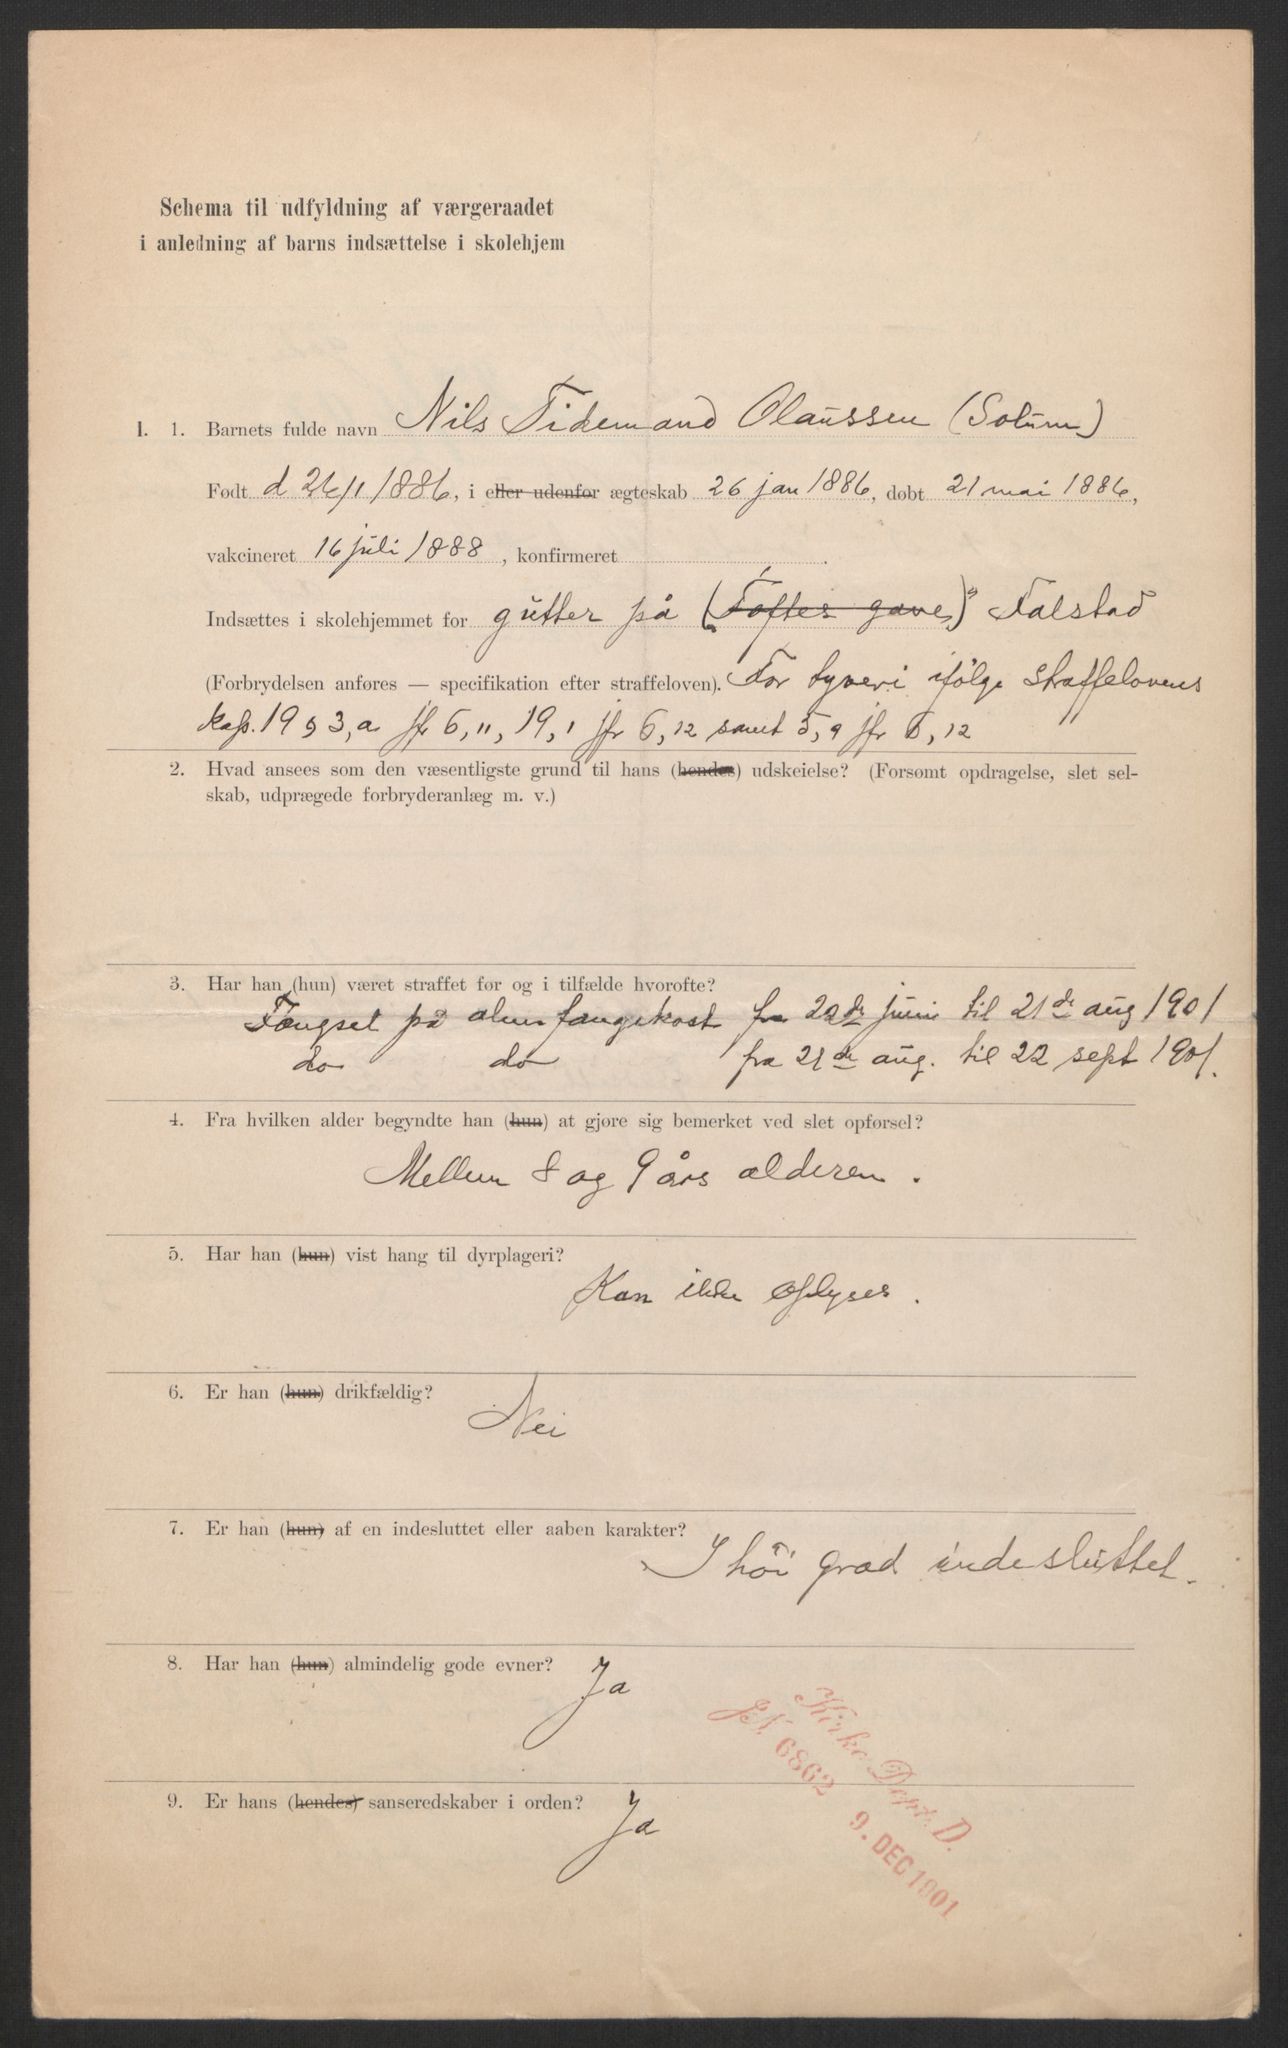 Schema til udfyldning af værgeraadet
i anledning af barns indsættelse i skolehjem
I. 1. Barnets fulde navn Nils Tidemand Olaussen (Solum)
Født d 26/1 1886, i eller udenfor ægteskab 26 jan 1886, døbt 21 mai 1886,
vakcineret 16 juli 1888, konfirmeret
Indsættes i skolehjemmet for gutter på (Toftes gave) Falstad
(Forbrydelsen anføres — specifikation efter straffeloven). For tyveri ifølge straffelovens
kap. 19 § 3, a jfr 6, 11, 19, 1 jfr 6, 12 samt 5, 9 jfr 6, 12
2. Hvad ansees som den væsentligste grund til hans (hendes) udskeielse? (Forsømt opdragelse, slet sel-
skab, udprægede forbryderanlæg m. v.)
3. Har han (hun) været straffet før og i tilfælde hvorofte?
Fængsel på alm fangekost fra 22de juni til 21de aug 1901
do do fra 21de aug. til 22 sept 1901.
4. Fra hvilken alder begyndte han (hun) at gjøre sig bemerket ved slet opførsel?
Mellem 8 og 9 års alderen.
5. Har han (hun) vist hang til dyrplageri?
Kan ikke oplyses.
6. Er han (hun) drikfældig?
Nei
7. Er han (hun) af en indesluttet eller aaben karakter?
I høi grad indesluttet.
8. Har han (hun) almindelig gode evner?
Ja
Kirke Dept. D.
JN. 6862 9. DEC 1901
9. Er hans (hendes) sanseredskaber i orden?
Ja